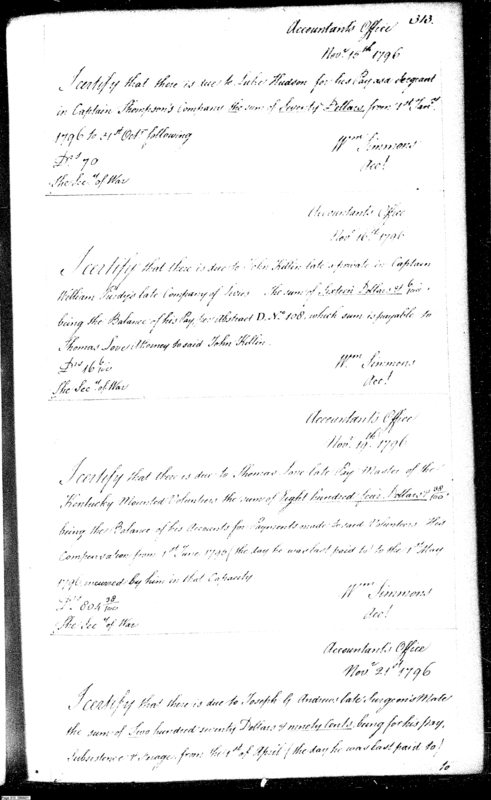 313.
Accountant's Office
Novr. 15th 1796
I certify that there is due to Luke Hudson for his Pay as a Sergeant
in Captain Thompson's Company the sum of Seventy Dollars from 1st Jany.
1796 to 31st Octr. following
Drs 70
The Secy. of War
Wm Simmons
Acct.
Accountant's Office
Novr. 16th 1796
I certify that there is due to John Killin late a private in Captain
William Purdy's late Company of Levies. The sum of Sixteen Dollars & 6/100
being the Balance of his Pay, per Abstract D. No. 108. which sum is payable to
Thomas Love Attorney to said John Killin.
Drs 16 6/100
The Secy. of War
Wm Simmons
Acct.
Accountant's Office
Novr. 19th 1796
I certify that there is due to Thomas Love late Pay Master of the
Kentucky Mounted Volunteers the sum of Eight hundred four Dollars & 38/100
being the Balance of his Accounts for Payments made to said Volunteers His
Compensation from 1st June 1795 (the day he was last paid to) to the 1st May
1796 incurred by him in that Capacity
Drs 804 38/100
The Secy. of War
Wm Simmons
Acct.
Accountant's Office
Novr. 21st 1796
I certify that there is due to Joseph G Andrews late Surgeon's Mate
the sum of Two hundred seventy Dollars & ninety Cents, being for his pay,
Subsistence & forage from the 1st of April (the day he was last paid to)
to